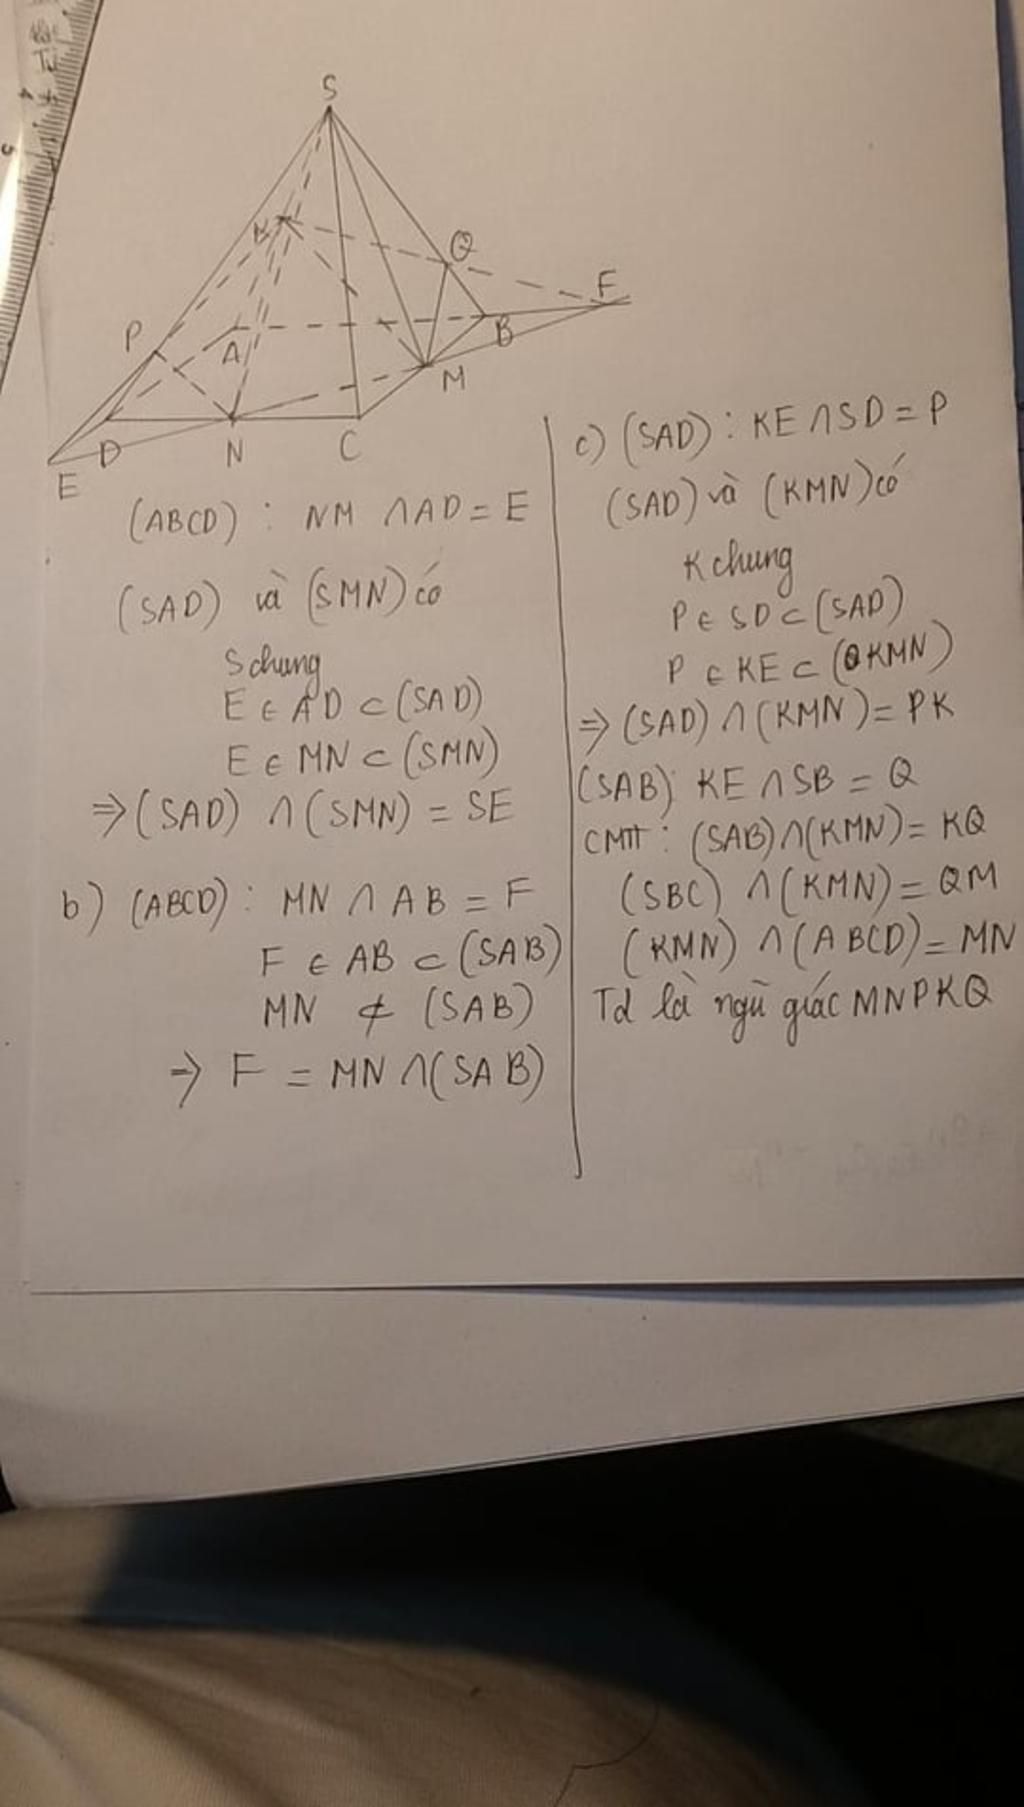 S
K
Q
F
P
A
B
M
D
N
C
E
(ABCD) : NM ∩ AD = E
(SAD) và (SMN) có
S chung
E ∈ AD ⊂ (SAD)
E ∈ MN ⊂ (SMN)
⇒ (SAD) ∩ (SMN) = SE
b) (ABCD) : MN ∩ AB = F
F ∈ AB ⊂ (SAB)
MN ⊄ (SAB)
⇒ F = MN ∩ (SAB)
c) (SAD) : KE ∩ SD = P
(SAD) và (KMN) có
K chung
P ∈ SD ⊂ (SAD)
P ∈ KE ⊂ (KMN)
⇒ (SAD) ∩ (KMN) = PK
(SAB) : KE ∩ SB = Q
CMTT : (SAB) ∩ (KMN) = KQ
(SBC) ∩ (KMN) = QM
(KMN) ∩ (ABCD) = MN
Td là ngũ giác MNPKQ